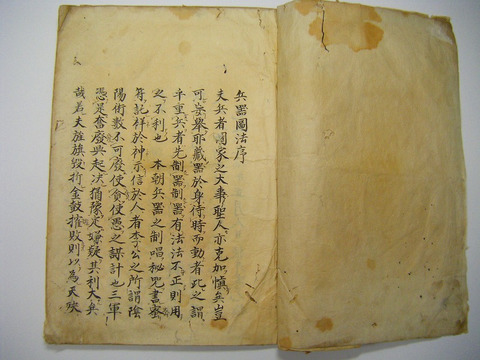 兵器圖法序
夫兵者國家之大事聖人亦克加慎矣豈
可妄舉耶藏器於身待時而動者此之謂
乎重兵者先制器制器有法法不正則用
之不利也　本朝兵器之制唱秘咒書密
符記祥於神示信於人者李公之所謂陰
陽術數不可廢使貪使愚之謀計也三軍
憑是奮廢興起决猶豫定嫌疑其利大矣
哉若夫旌旗毀折金鼓摧敗則以為天咲